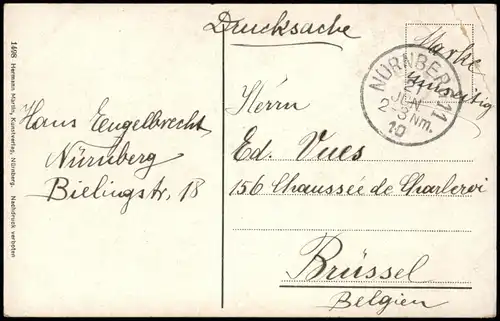 Drucksache
Marke
umseitig
NÜRNBERG 11
2
JUN
2-3 Nm.
10
Hans Engelbrecht
Nürnberg
Bielingstr, 18
Herrn
Ed. Vues
156 Chaussée de Charleroi
Brüssel
Belgien
1498 Hermann Martin, Kunstverlag, Nürnberg. Nachdruck verboten